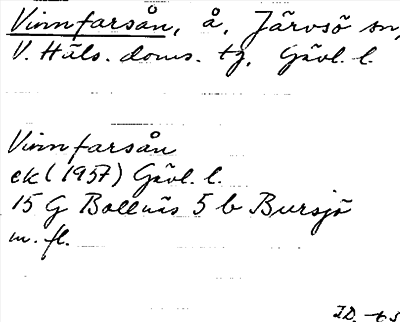 Vinnfarsån, å, Järvsö sn,
V. Häls. doms. tg, Gävl. l.
Vinnfarsån
ek (1957) Gävl. l.
15 G Bollnäs 5 b Bursjö
m. fl.